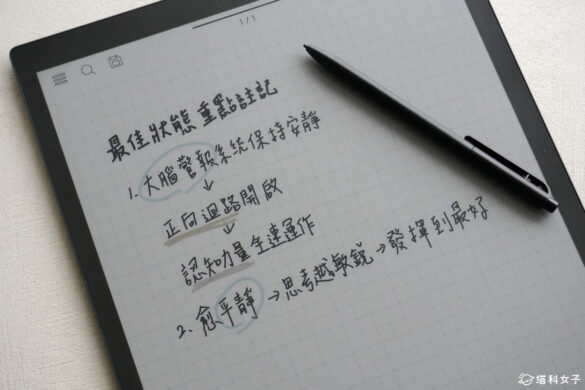 1/1
最佳狀態 重點註記
1. 大腦警報系統保持安靜
↓
正向迴路開啟
↓
認知力量全速運作
2. 愈平靜→思考越敏銳→發揮到最好
塔科女子